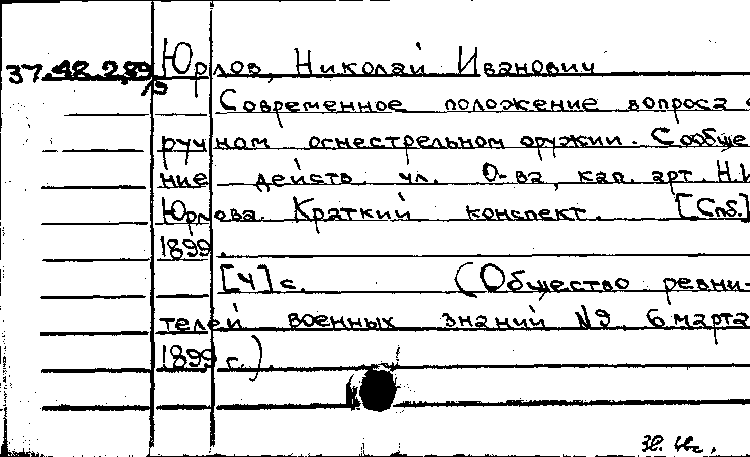 37.48.2.89 Юрлов, Николай Иванович
/9
Современное положение вопроса о
ручном огнестрельном оружии. Сообще-
ние действ. чл. О-ва, кап. арт. Н.И.
Юрлова. Краткий конспект. [Спб.]
1899.
[4] с. (Общество ревни-
телей военных знаний №9, 6 марта
1899 г.).